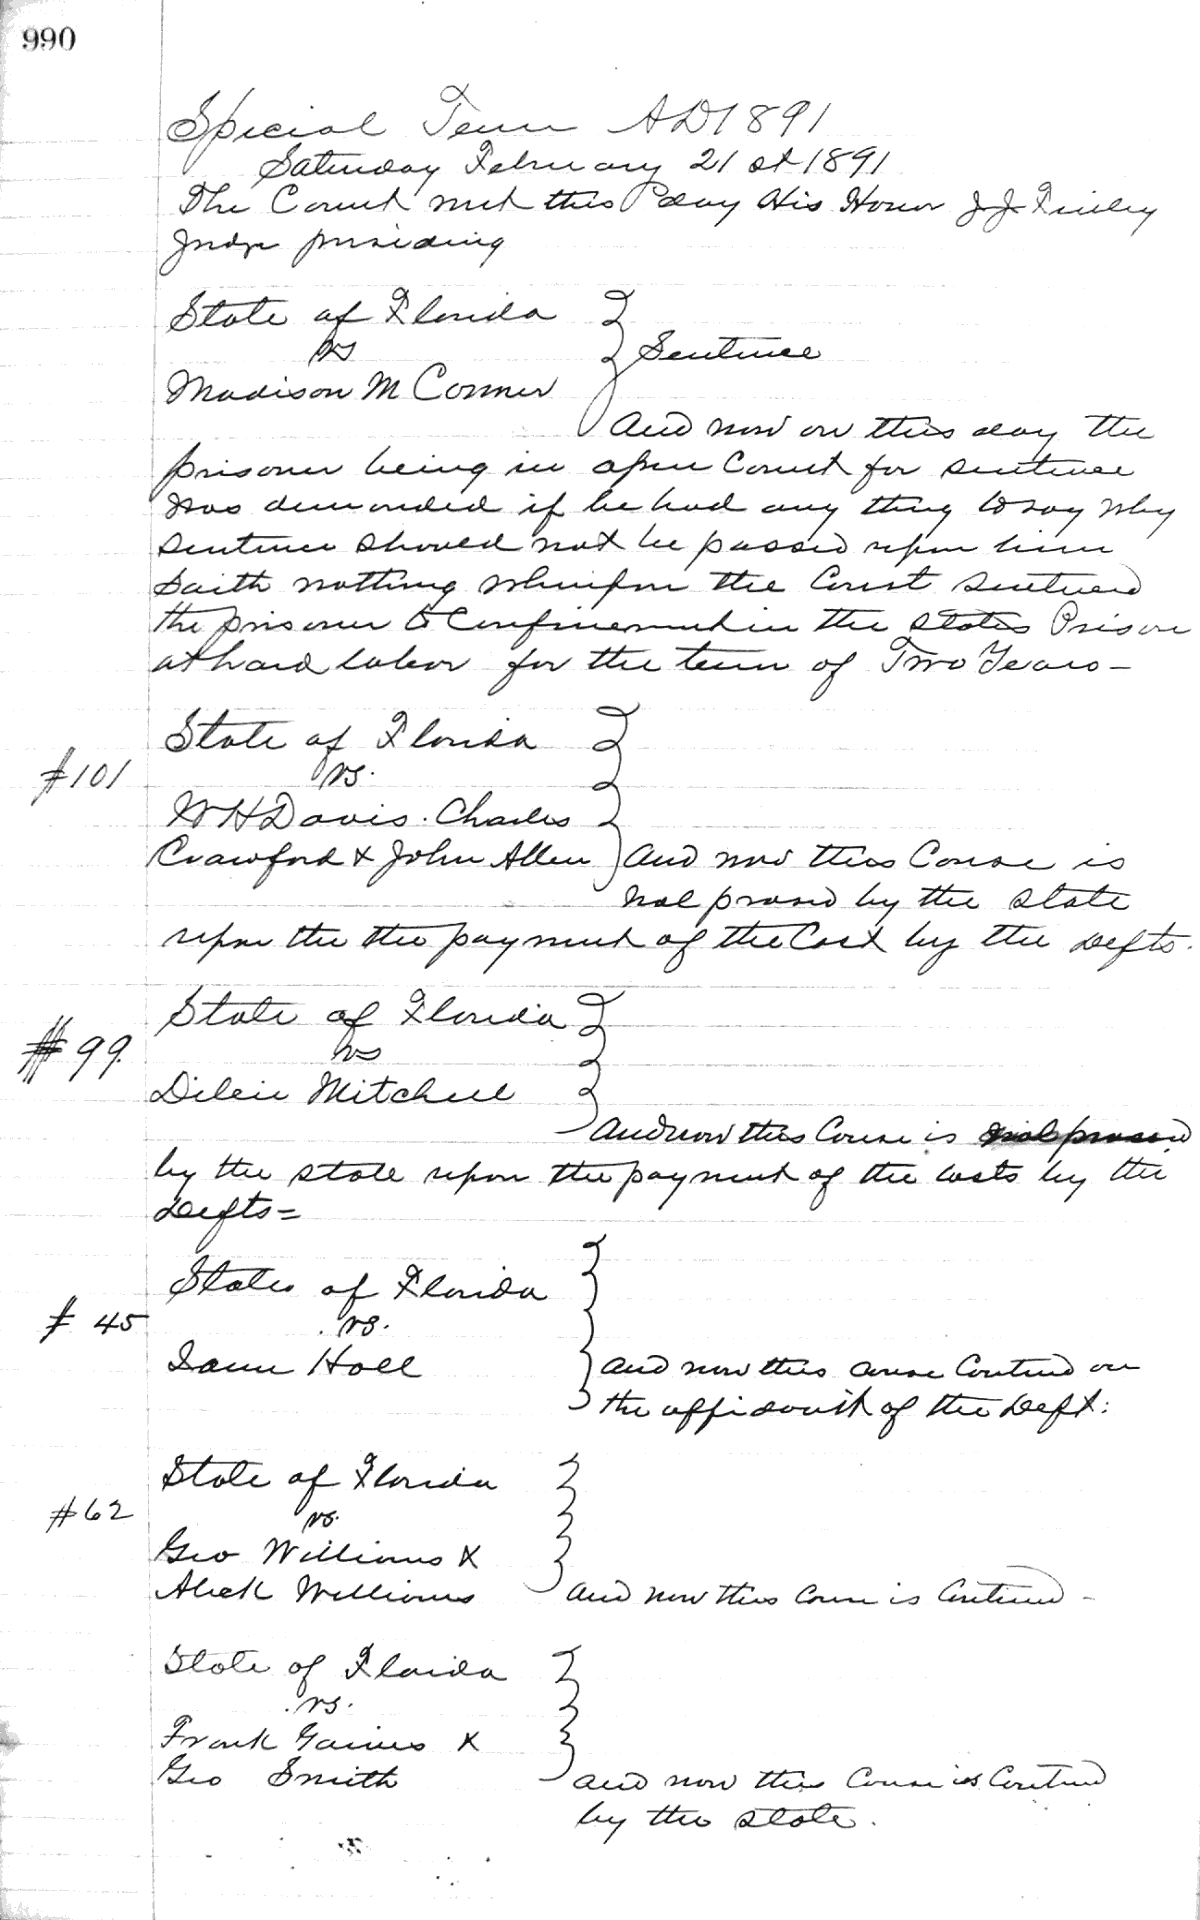 990
Special Term AD 1891
Saturday February 21st 1891
The Court met this day His Honor J J Finley
Judge presiding
State of Florida
vs
Sentence
Madison M Conner
And now on this day the
prisoner being in open Court for sentence
was demanded if he had any thing to say why
sentence should not be passed upon him
saith nothing whereupon the Court sentenced
the prisoner to Confinement in the states Prison
at hard labor for the term of Two Years –
State of Florida
#101
vs.
W H Davis. Charles
Crawford & John Allen
And now this Cause is
nol prosed by the state
upon the the payment of the Cost by the Defts.
State of Florida
#99.
vs
Mitchell
And now this Cause is nol prosed
by the state upon the payment of the costs by the
Defts =
States of Florida
# 45
vs.
Hall
and now this cause Contined on
the affidavit of the Deft:
State of Florida
#62
vs.
Geo Williams &
Aleck Williams
and now this Cause is Contined –
State of Florida
vs.
Frank Gaines &
Geo Smith
and now this Cause is Contined
by the state.